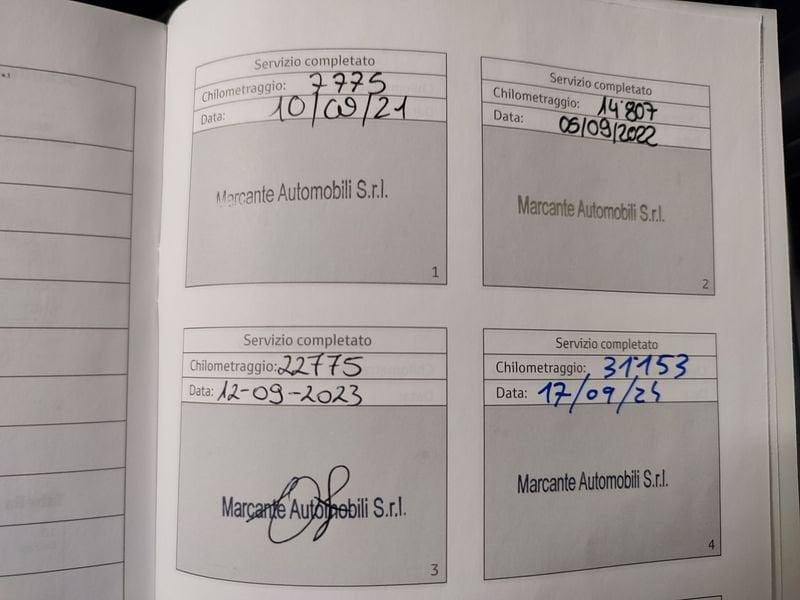 Servizio completato
Chilometraggio: 7775
Data: 10/09/21
Marcante Automobili S.r.l.
1
Servizio completato
Chilometraggio: 14'807
Data: 05/09/2022
Marcante Automobili S.r.l.
2
Servizio completato
Chilometraggio: 22775
Data: 12-09-2023
Marcante Automobili S.r.l.
3
Servizio completato
Chilometraggio: 31'153
Data: 17/09/24
Marcante Automobili S.r.l.
4